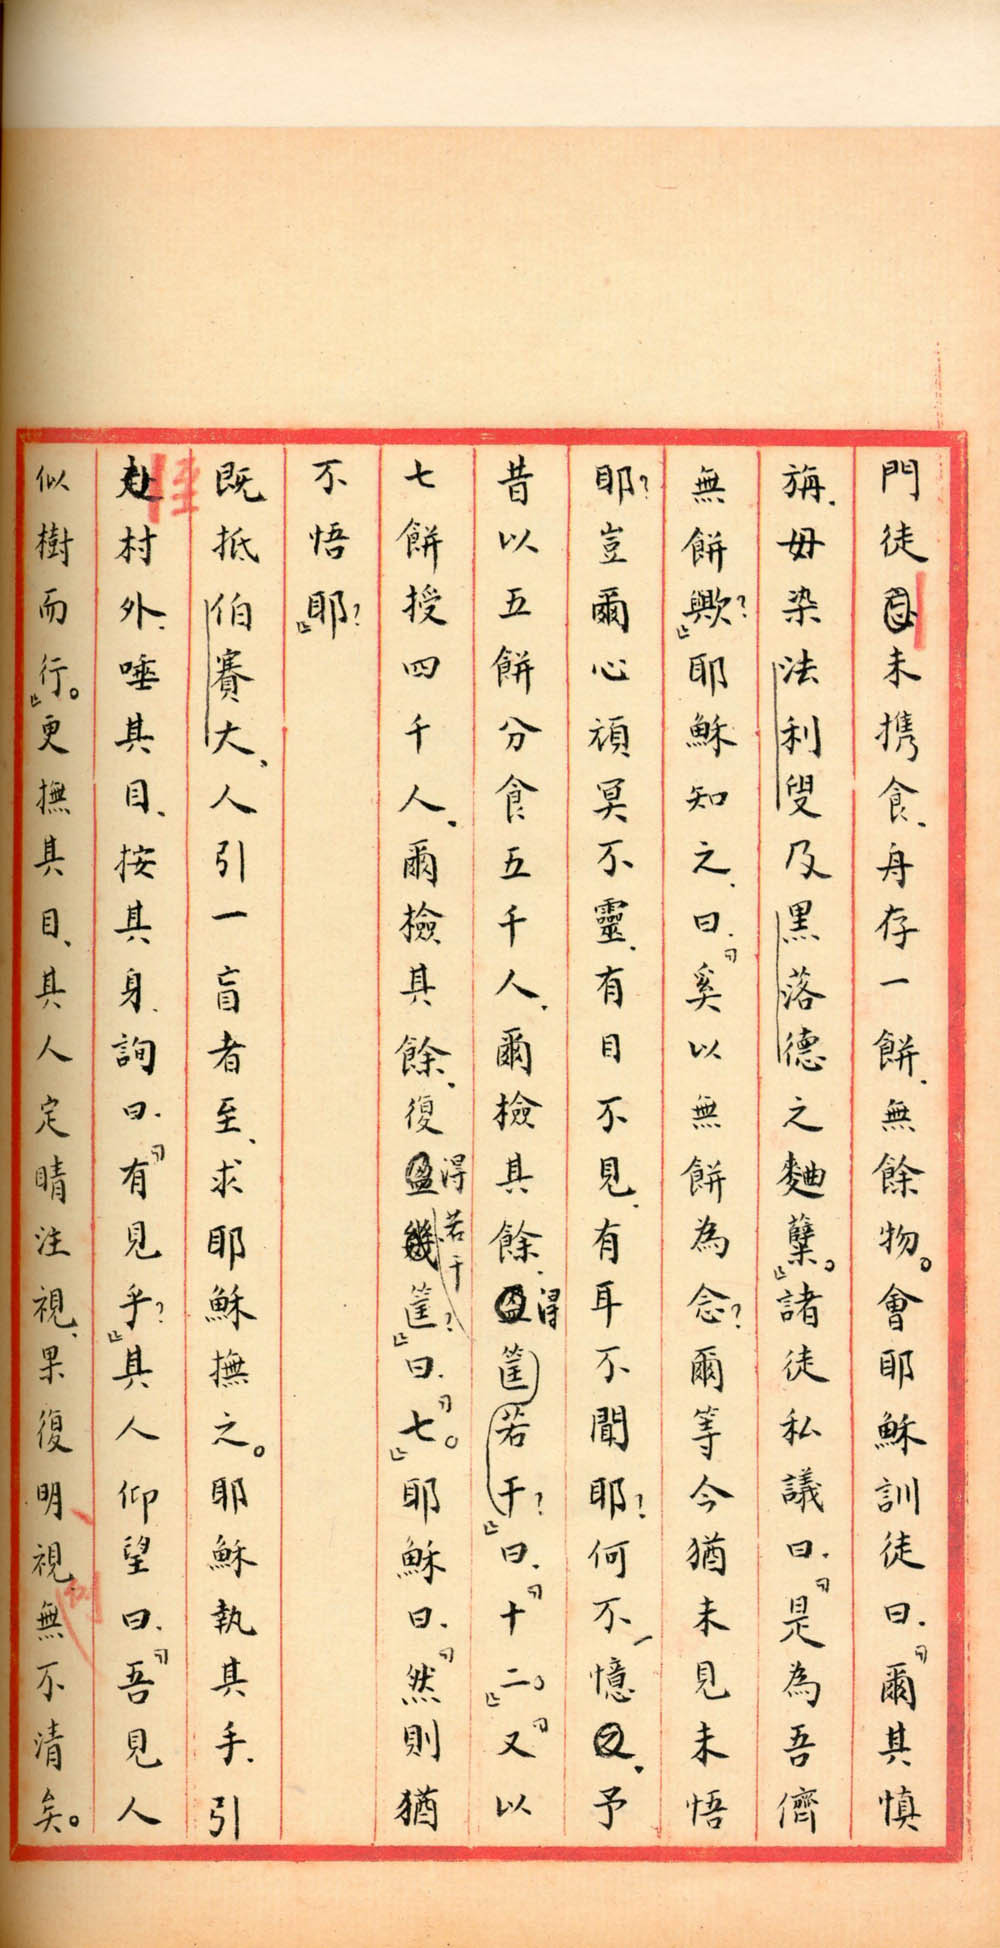 門徒未携食、舟存一餅、無餘物。會耶穌訓徒曰、「爾其慎
旃、毋染法利叟及黑落德之麯糵。」諸徒私議曰、「是為吾儕
無餅歟?」耶穌知之、曰、「奚以無餅為念?爾等今猶未見未悟
耶?豈爾心頑冥不靈、有目不見、有耳不聞耶?何不憶、予
昔以五餅分食五千人、爾檢其餘、得筐若干?」曰、「十二。」「又以
七餅授四千人、爾檢其餘、復得若干筐?」曰、「七。」耶穌曰、「然則猶
不悟耶?」
既抵伯賽大、人引一盲者至、求耶穌撫之。耶穌執其手、引
赴村外、唾其目、按其身、詢曰、「有見乎?」其人仰望曰、「吾見人
似樹而行。」更撫其目、其人定睛注視、果復明視、無不清矣。